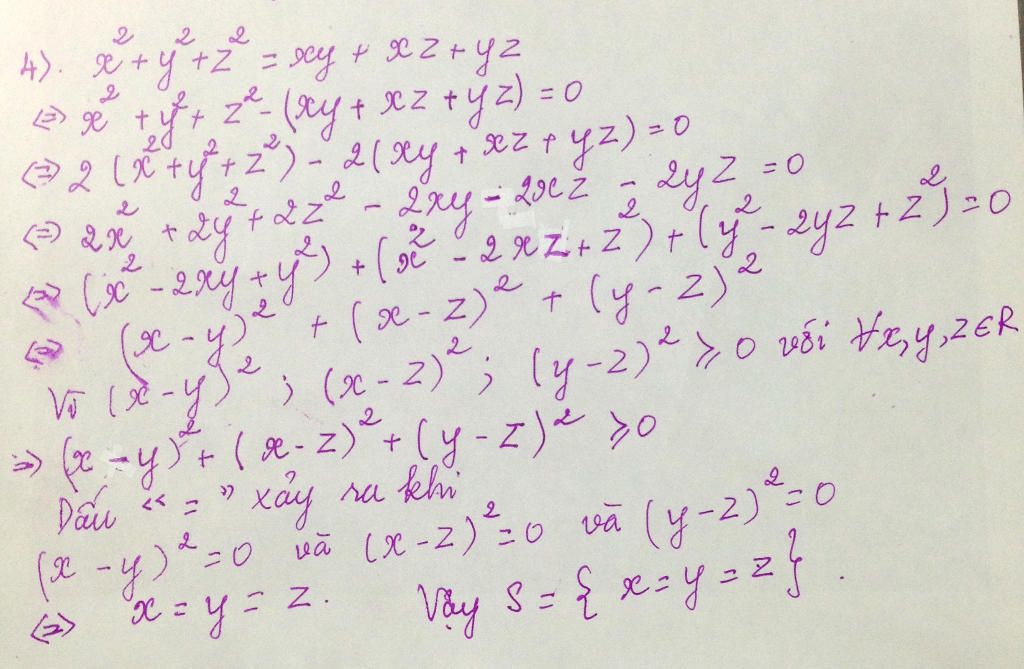 4). x² + y² + z² = xy + xz + yz
⇔ x² + y² + z² - (xy + xz + yz) = 0
⇔ 2 (x² + y² + z²) - 2(xy + xz + yz) = 0
⇔ 2x² + 2y² + 2z² - 2xy - 2xz - 2yz = 0
⇔ (x² - 2xy + y²) + (x² - 2xz + z²) + (y² - 2yz + z²) = 0
⇔ (x - y)² + (x - z)² + (y - z)²
Vì (x - y)² ; (x - z)² ; (y - z)² ≥ 0 với ∀x, y, z ∈ R
⇒ (x - y)² + (x - z)² + (y - z)² ≥ 0
Dấu « = » xảy ra khi
(x - y)² = 0 và (x - z)² = 0 và (y - z)² = 0
⇔ x = y = z. Vậy S = { x = y = z } .